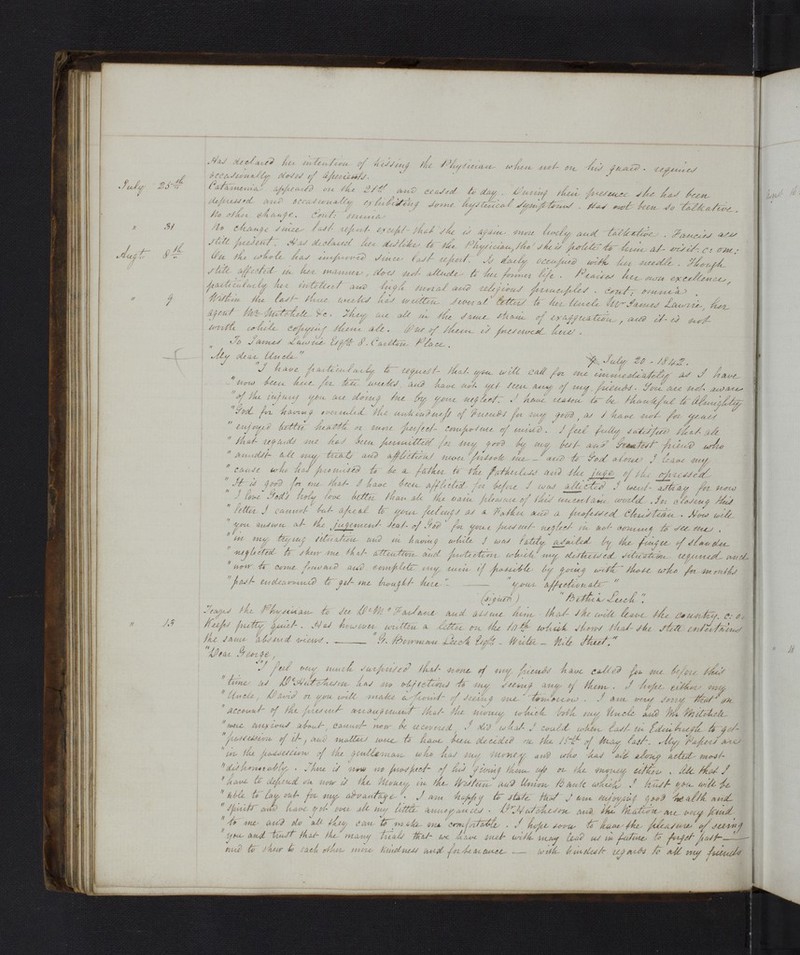 Has declared her intention of kissing the Physician when not on his guard. requires
occasionally doses of Aperients.
July 25th Catamenia appeared on the 21st and ceased to day. During their presence she has been
depressed and occasionally exhibiting some hysterical symptoms. Has not been so talkative.
No other change. Cont. omnia
" 31 No change since last report except that she is again more lively and talkative. Fancies are
still present. Has declared her dislike to the Physician, tho' she is polite to him at visit. c: om:
Augt 8th On the whole has improved since last report. Is daily occupied with her needle. Though
still affected in her manner, does not allude to her former life. Praises her own excellences,
particularly her intellect and high moral and religious principles. cont; omnia.
" 9 Within the last three weeks has written several letters to her Uncle Mr James Lawrie, her
agent Mr Mitchell &c. They are all in the same strain of exaggeration, and it is not
worth while copying them all. One of them is preserved here.
"To James Lawrie Esqre 8. Carlton Place.
"My dear Uncle" July 20 - 1842.
"I have particularly to request that you will call for me immediately as I have
"now been here for ten weeks and have not yet seen any of my friends. You are not aware
"of the injury you are doing me by your neglect. I have reason to be thankful to Almighty
"God for having overruled the unkindness of friends for my good, as I have not for years
"enjoyed better health or more perfect composure of mind. I feel fully satisfied that all
"that regards me has been permitted for my good by my best and Greatest friend who
"amidst all my trials and afflictions never forsook me - and to God alone I leave my
"cause who has promised to be a father to the fatherless and the juge of the opressed
"It is good for me that I have been afflicted for before I was allicted I went astray for now
"I love God's holy love better than all the vain pleasures of this uncertain world. In closing this
"letter I cannot but apeal to your feelings as a Father and a professed Christian. How will
"you answer at the jugement seat of God for your present neglect in not coming to see me.
"in my trying situation and in having while I was lately asailed by the finger of slander
"neglected to shew me that attention and protection which my distressed situation required and
"now to come forward and complete my ruin if possible by going with those who for months
"past endeavoured to get me brought here". "your affectionate"
(signed) "Bethia Leech".
Teazes the Physician to see Dr McFarlane and assure him that she will leave the country. c: o.
" 13 Keeps pretty quiet. Has however written a letter on the 10th which shows that she still entertains
the same absurd views. "G. Bowman Leech Esqre - Writer - Nile Street."
"Dear George,
"I feel very much surprised that none of my friends have called for me before this
"time as Dr Hutcheson has no objections to my seeing any of them. I hope either my
"Uncle, David or you will make a point of seeing me tomorrow. I am very sorry that on
"account of the present arrangement that the money which both my Uncle and Mr Mitchell
"were anxious about cannot now be recovered, I did what I could when last in Edinburgh to get
"possession of it, and matters were to have been decided on the 15th of May last. My Papers are
"in the possession of the gentleman who has my money and who has all along acted most
"dishonourably. There is now no prospect of his giving them up or the money either. All that I
"have to depend on now is the Money in the Western and Union Bank which I trust you will be
"able to lay out for my advantage. I am happy to state that I am enjoying good health and
"spirits and have got over all my little annoyances. Dr Hutcheson and the Matron are very kind
"to me and do all they can to make me comfortable. I hope soon to have the pleasure of seeing
"you and trust that the many trials that we have met with may lead us in future to forget past
and to shew to each other more kindness and forbearance - with kindest regards to all my friends